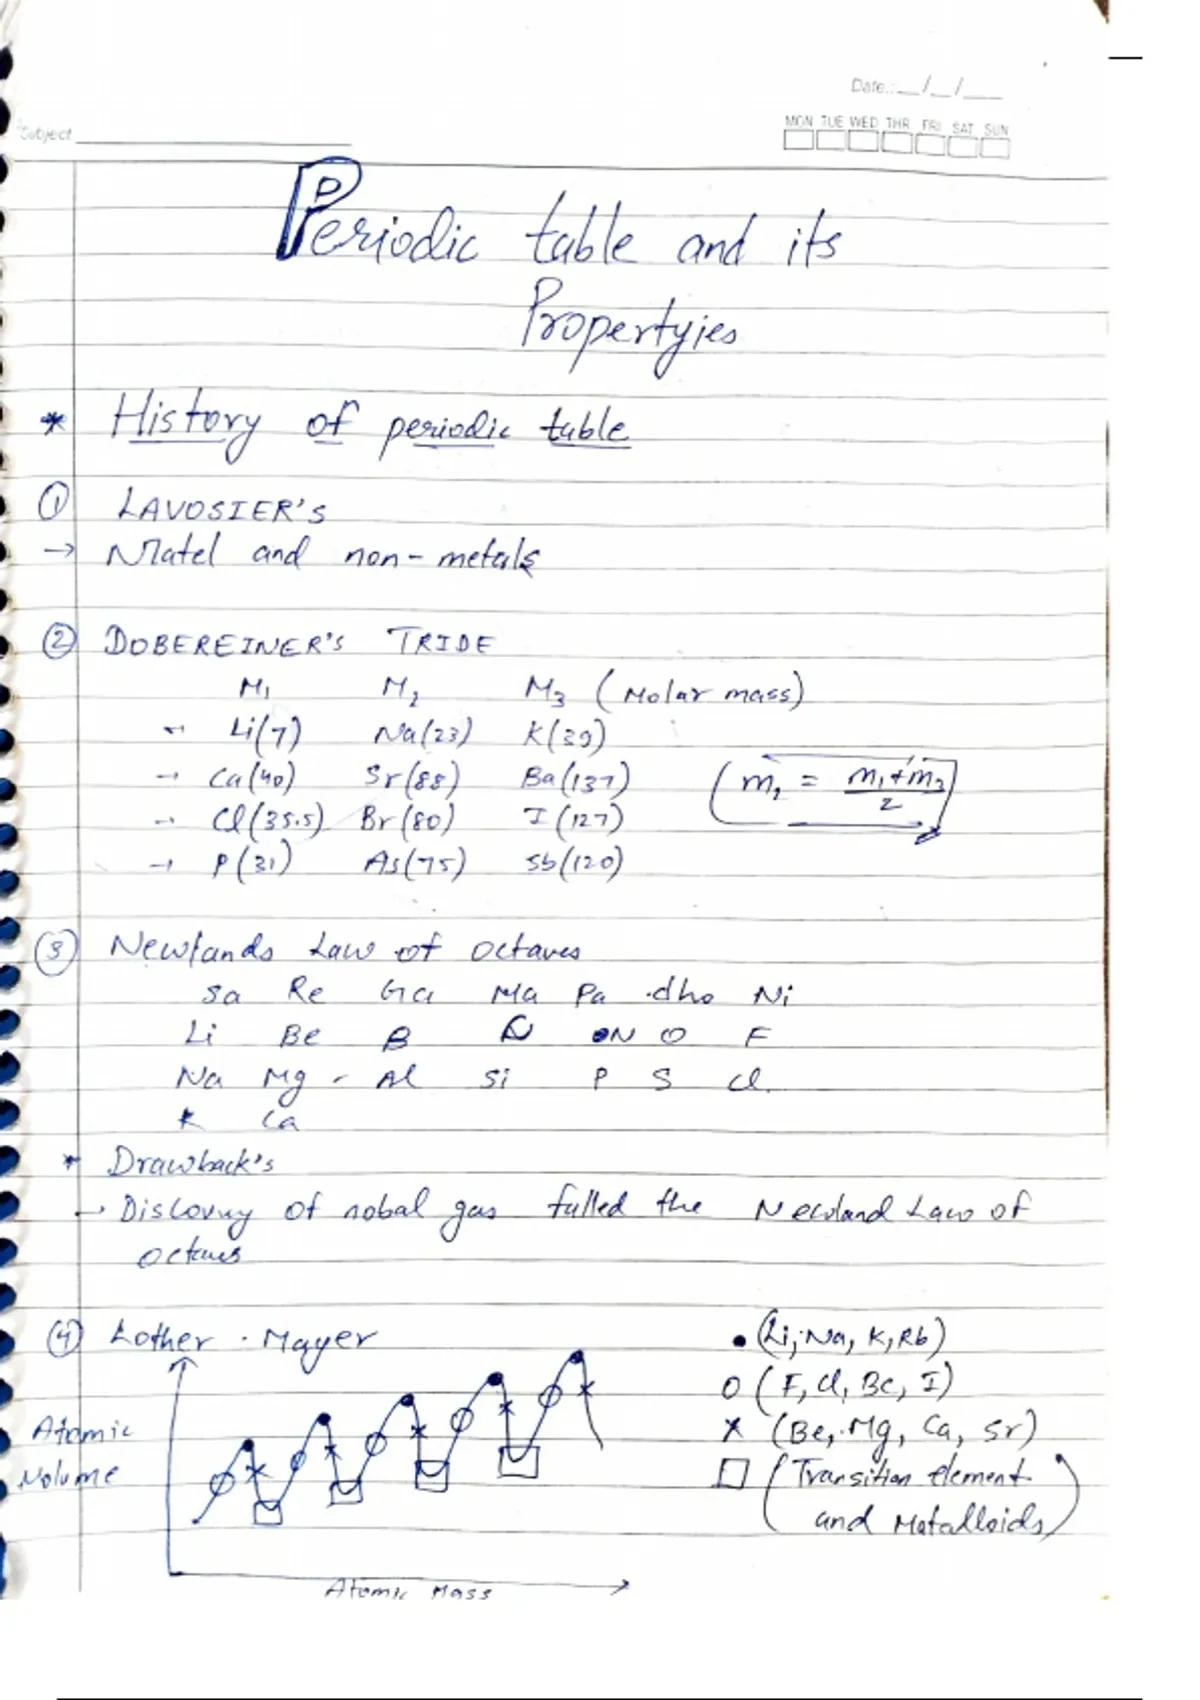 Date.:__/__/__
MON TUE WED THR FRI SAT SUN
Subject
Periodic table and its
Propertyies
* History of periodic table
① LAVOSIER'S
→ Matel and non-metals
② DOBEREINER'S TRIDE
M₁ M₂ M₃ (Molar mass)
→ Li(7) Na(23) K(39)
→ Ca(40) Sr(88) Ba(137)
(m₂ = m₁+m₃/2)
→ Cl(35.5) Br(80) I(127)
→ P(31) As(75) Sb(120)
③ Newlands Law of octaves
Sa Re Ga Ma Pa dho Ni
Li Be B C N O F
Na Mg - Al Si P S Cl
K Ca
* Drawback's
→ Discovuy of nobal gas falled the Newland Law of
octaves
④ Lother . Mayer
• (Li, Na, K, Rb)
O (F, Cl, Be, I)
Atomic
Volume
x (Be, Mg, Ca, Sr)
□ (Transition element
and Metalloids)
Atomic Mass